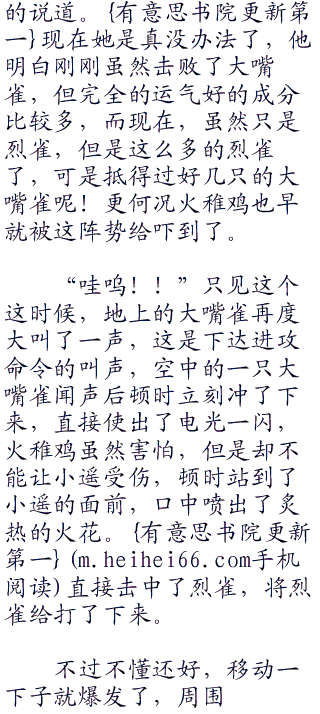 的说道。{有意思书院更新第
一}现在她是真没办法了，他
明白刚刚虽然击败了大嘴
雀，但完全的运气好的成分
比较多，而现在，虽然只是
烈雀，但是这么多的烈雀
了，可是抵得过好几只的大
嘴雀呢！更何况火稚鸡也早
就被这阵势给吓到了。
“哇呜！！”只见这个
这时候，地上的大嘴雀再度
大叫了一声，这是下达进攻
命令的叫声，空中的一只大
嘴雀闻声后顿时立刻冲了下
来，直接使出了电光一闪，
火稚鸡虽然害怕，但是却不
能让小遥受伤，顿时站到了
小遥的面前，口中喷出了炙
热的火花。{有意思书院更新
第一}(m.heihei66.com手机
阅读)直接击中了烈雀，将烈
雀给打了下来。
不过不懂还好，移动一
下子就爆发了，周围